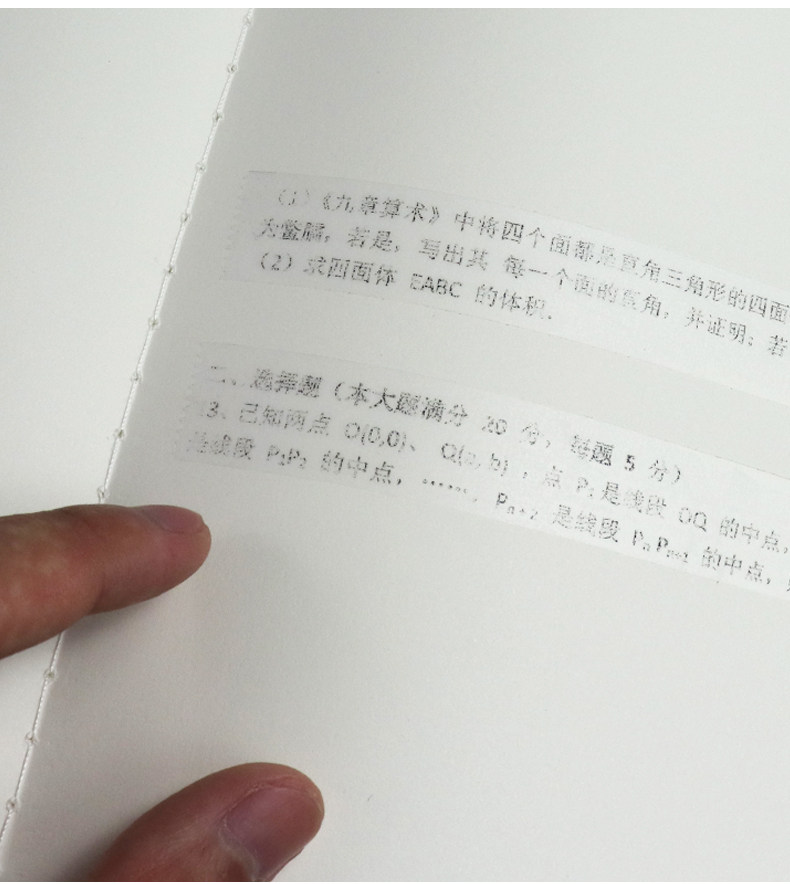 (1)《九章算术》中将四个面都是直角三角形的四面
为鳖臑,若是,写出其 每一个面的直角,并证明;若
(2)求四面体 EABC 的体积.
二、选择题(本大题满分 20 分,每题 5 分)
3、已知两点 O(0,0)、 Q(a,b),点 P₁是线段 OQ 的中点,
是线段 P₁P₂ 的中点,······,Pₙ₊₂ 是线段 PₙPₙ₊₁ 的中点,